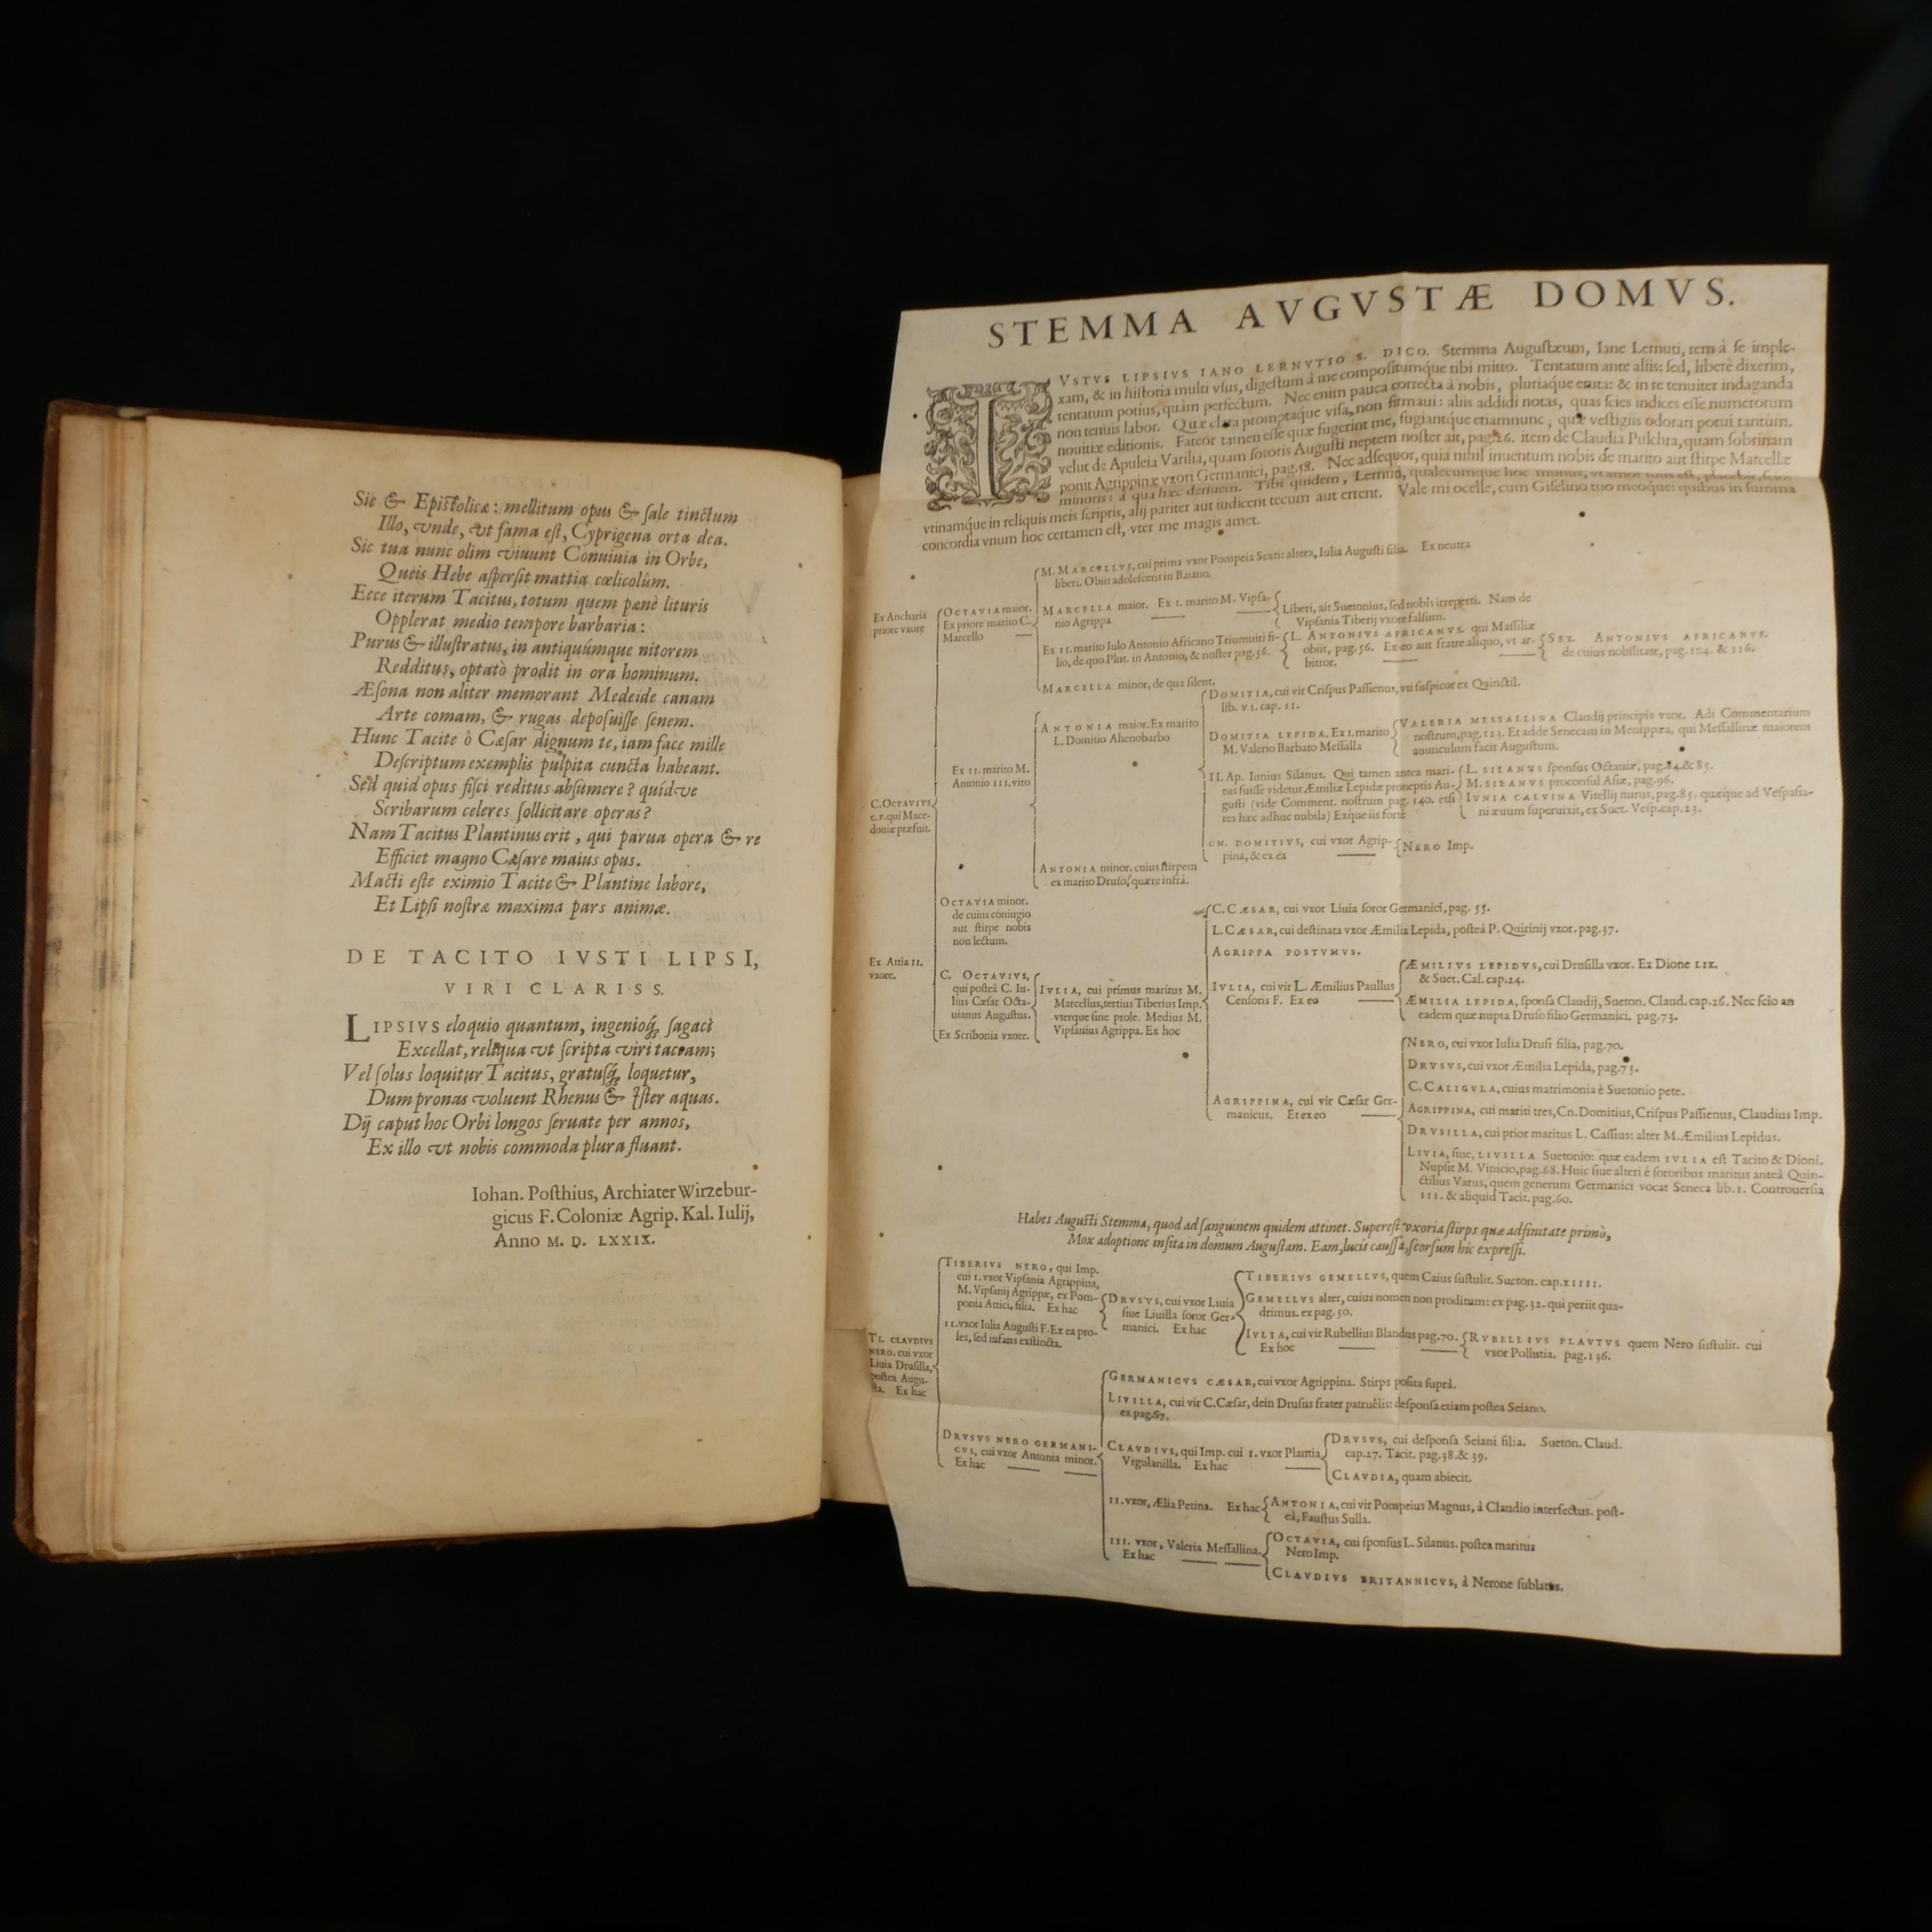 Sic & Epiſtolicæ: mellitum opus & ſale tinctum
Illo, vnde, vt fama eſt, Cyprigena orta dea.
Sic tua nunc olim viuunt Conuiuia in Orbe,
Queis Hebe aſperſit mattia cœlicolûm.
Ecce iterum Tacitus, totum quem pænè lituris
Opplerat medio tempore barbaria:
Purus & illuſtratus, in antiquúmque nitorem
Redditus, optatò prodit in ora hominum.
Æſona non aliter memorant Medeide canam
Arte comam, & rugas depoſuiſſe ſenem.
Hunc Tacite ô Cæſar dignum te, iam face mille
Deſcriptum exemplis pulpita cuncta habeant.
Sed quid opus fiſci reditus abſumere? quíd-ve
Scribarum celeres ſollicitare operas?
Nam Tacitus Plantinus erit, qui parua opera & re
Efficiet magno Cæſare maius opus.
Macti eſte eximio Tacite & Plantine labore,
Et Lipſi noſtræ maxima pars animæ.
DE TACITO IVSTI LIPSI,
VIRI CLARISS.
LIPSIVS eloquio quantum, ingenioq́; ſagaci
Excellat, reliqua vt ſcripta viri taceam;
Vel ſolus loquitur Tacitus, gratuſq́; loquetur,
Dum pronas voluent Rhenus & Iſter aquas.
Dij caput hoc Orbi longos ſeruate per annos,
Ex illo vt nobis commoda plura fluant.
Iohan. Poſthius, Archiater Wirzebur-
gicus F. Coloniæ Agrip. Kal. Iulij,
Anno M. D. LXXIX.
STEMMA AVGVSTÆ DOMVS.
IVSTVS LIPSIVS IANO LERNVTIO S. DICO. Stemma Auguſtæum, Iane Lernuti, rem à ſe imple-
xam, & in hiſtoria multi vſus, digeſtum à me compoſitumque tibi mitto. Tentatum ante aliis: ſed, liberè dixerim,
tentatum potius, quàm perfectum. Nec enim pauca correcta à nobis, pluriaque eruta: & in re tenuiter indaganda
non tenuis labor. Quæ clara promptaque viſa, non firmaui: aliis addidi notas, quas ſcies indices eſſe numerorum
nouitiæ editionis. Fateor tamen eſſe quæ fugerint me, fugiantque etiamnunc, quæ veſtigiis odorari potui tantùm.
velut de Apuleia Varilia, quam ſororis Auguſti neptem noſter ait, pag. 26. item de Claudia Pulchra, quam ſobrinam
ponit Agrippinæ vxori Germanici, pag. 58. Nec adſequor, quia nihil inuentum nobis de marito aut ſtirpe Marcellæ
minoris: à qua hæc deriuem. Tibi quidem, Lernuti, qualecumque hoc munus,
vtinamque in reliquis meis ſcriptis, alij pariter aut iudicent tecum aut errent. Vale mi ocelle, cum Giſelino tuo meoque: quibus in ſumma
concordia vnum hoc certamen eſt, vter me magis amet.
M. MARCELLVS, cui prima vxor Pompeia Sexti: altera, Iulia Auguſti filia. Ex neutra
liberi. Obiit adoleſcens in Baiano.
Ex Ancharia
priore vxore
OCTAVIA maior.
Ex priore marito C.
Marcello
MARCELLA maior. Ex I. marito M. Vipſa-
nio Agrippa
Liberi, ait Suetonius, ſed nobis irreperti. Nam de
Vipſania Tiberij vxore falſum.
Ex II. marito Iulo Antonio Africano Triumuiri fi-
lio, de quo Plut. in Antonio, & noſter pag. 56.
L. ANTONIVS AFRICANVS. qui Maſſiliæ
obiit, pag. 56. Ex eo aut fratre aliquo, vt ar-
bitror.
SEX. ANTONIVS AFRICANVS.
de cuius nobilitate, pag. 104. & 116.
MARCELLA minor, de qua ſilent.
Ex II. marito M.
Antonio III. viro
ANTONIA maior. Ex marito
L. Domitio Ahenobarbo
DOMITIA, cui vir Criſpus Paſſienus, vti ſuſpicor ex Quinctil.
lib. VI. cap. II.
DOMITIA LEPIDA. Ex I. marito
M. Valerio Barbato Meſſalla
VALERIA MESSALLINA Claudij principis vxor. Adi Commentarium
noſtrum, pag. 123. Et adde Senecam in Menippæa, qui Meſſallinæ maiorem
auunculum facit Auguſtum.
II. Ap. Iunius Silanus. Qui tamen antea mari-
tus fuiſſe videtur Æmiliæ Lepidæ proneptis Au-
guſti (vide Comment. noſtrum pag. 140. etſi
res hæc adhuc nubila) Exque iis fortè
L. SILANVS ſponſus Octauiæ, pag. 84. & 85.
M. SILANVS proconſul Aſiæ, pag. 96.
IVNIA CALVINA Vitellij nurus, pag. 85. quæque ad Veſpaſia-
ni æuum ſuperuixit, ex Suet. Veſp. cap. 23.
CN. DOMITIVS, cui vxor Agrip-
pina, & ex ea
NERO Imp.
ANTONIA minor. cuius ſtirpem
ex marito Druſo, quære infrà.
C. OCTAVIVS
C. F. qui Mace-
doniæ præfuit.
OCTAVIA minor.
de cuius coniugio
aut ſtirpe nobis
non lectum.
Ex Attia II.
vxore.
C. OCTAVIVS,
qui poſteà C. Iu-
lius Cæſar Octa-
uianus Auguſtus.
Ex Scribonia vxore.
IVLIA, cui primus maritus M.
Marcellus, tertius Tiberius Imp.
vterque ſine prole. Medius M.
Vipſanius Agrippa. Ex hoc
C. CÆSAR, cui vxor Liuia ſoror Germanici, pag. 55.
L. CÆSAR, cui deſtinata vxor Æmilia Lepida, poſteà P. Quirinij vxor. pag. 37.
AGRIPPA POSTVMVS.
IVLIA, cui vir L. Æmilius Paullus
Cenſoris F. Ex eo
ÆMILIVS LEPIDVS, cui Druſilla vxor. Ex Dione LIX.
& Suet. Cal. cap. 24.
ÆMILIA LEPIDA, ſponſa Claudij, Sueton. Claud. cap. 26. Nec ſcio an
eadem quæ nupta Druſo filio Germanici. pag. 73.
AGRIPPINA, cui vir Cæſar Ger-
manicus. Et ex eo
NERO, cui vxor Iulia Druſi filia, pag. 70.
DRVSVS, cui vxor Æmilia Lepida, pag. 73.
C. CALIGVLA, cuius matrimonia è Suetonio pete.
AGRIPPINA, cui mariti tres, Cn. Domitius, Criſpus Paſſienus, Claudius Imp.
DRVSILLA, cui prior maritus L. Caſſius: alter M. Æmilius Lepidus.
LIVIA, ſiue, LIVILLA Suetonio: quæ eadem IVLIA eſt Tacito & Dioni.
Nupſit M. Vinicio, pag. 68. Huic ſiue alteri è ſororibus maritus anteà Quin-
ctilius Varus, quem generum Germanici vocat Seneca lib. I. Controuerſia
III. & aliquid Tacit. pag. 60.
Habes Auguſti Stemma, quod ad ſanguinem quidem attinet. Supereſt vxoria ſtirps quæ adfinitate primò,
Mox adoptione inſita in domum Auguſtam. Eam, lucis cauſſâ, ſeorſum hîc expreſſi.
TI. CLAVDIVS
NERO. cui vxor
Liuia Druſilla,
poſtea Augu-
ſta. Ex hac
TIBERIVS NERO, qui Imp.
cui I. vxor Vipſania Agrippina,
M. Vipſanij Agrippæ, ex Pom-
ponia Attici, filia. Ex hac
II. vxor Iulia Auguſti F. Ex ea pro-
les, ſed infans exſtincta.
DRVSVS, cui vxor Liuia
ſiue Liuilla ſoror Ger-
manici. Ex hac
TIBERIVS GEMELLVS, quem Caius ſuſtulit. Sueton. cap. XIIII.
GEMELLVS alter, cuius nomen non proditum: ex pag. 32. qui periit qua-
drimus. ex pag. 50.
IVLIA, cui vir Rubellius Blandus pag. 70.
Ex hoc
RVBELLIVS PLAVTVS quem Nero ſuſtulit. cui
vxor Pollutia. pag. 136.
DRVSVS NERO GERMANI-
CVS, cui vxor Antonia minor.
Ex hac
GERMANICVS CÆSAR, cui vxor Agrippina. Stirps poſita ſuprà.
LIVILLA, cui vir C. Cæſar, dein Druſus frater patruêlis: deſponſa etiam poſtea Seiano.
ex pag. 67.
CLAVDIVS, qui Imp. cui I. vxor Plautia
Vrgulanilla. Ex hac
DRVSVS, cui deſponſa Seiani filia. Sueton. Claud.
cap. 27. Tacit. pag. 38. & 39.
CLAVDIA, quam abiecit.
II. vxor, Ælia Petina. Ex hac
ANTONIA, cui vir Pompeius Magnus, à Claudio interfectus. poſt-
eà, Fauſtus Sulla.
III. vxor, Valeria Meſſallina.
Ex hac
OCTAVIA, cui ſponſus L. Silanus. poſtea maritus
Nero Imp.
CLAVDIVS BRITANNICVS, à Nerone ſublatus.